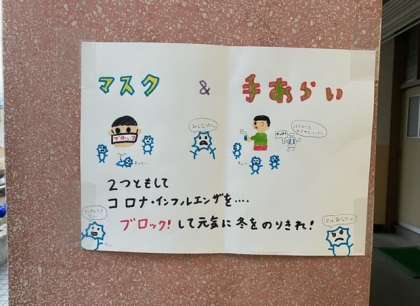 マスク & 手あらい
ブロック
2つともして
コロナ・インフルエンザを‥‥
ブロック!して元気に冬をのりきれ!